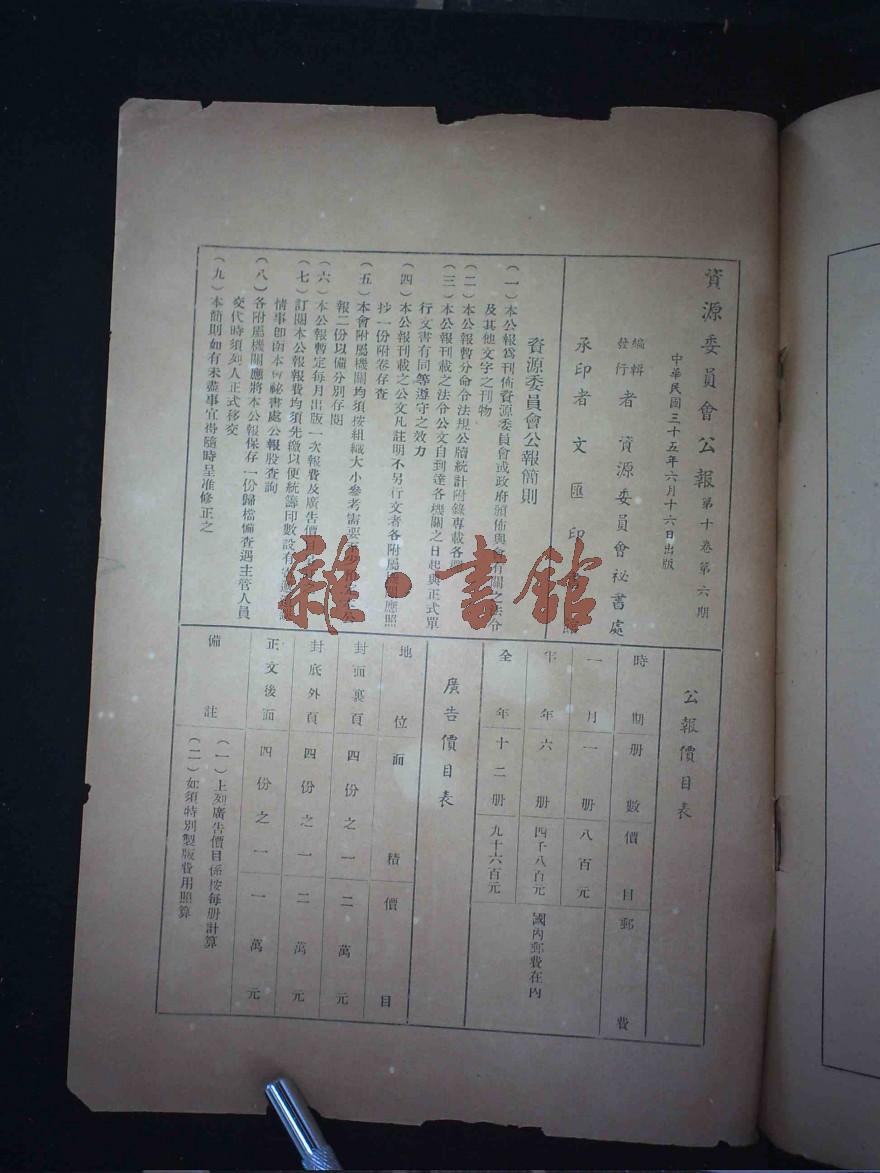 資源委員會公報 第十卷第六期
中華民國三十五年六月十六日出版
編輯
發行
者 資源委員會祕書處
承印者 文匯印
資源委員會公報簡則
(一)本公報爲刊佈資源委員會或政府頒佈與會有關之法令
及其他文字之刊物
(二)本公報暫分命令法規公牘統計附錄專載各
(三)本公報刊載之法令公文自到達各機關之日起與正式單
行文書有同等遵守之效力
(四)本公報刊載之公文凡註明不另行文者各附屬機關應照
抄一份附卷存查
(五)本會附屬機關均須按組織大小參考需要
報二份以備分別存閱
(六)本公報暫定每月出版一次報費及廣告價目
(七)訂閱本公報報費均須先繳以便統籌印數設有
情事卽函本會祕書處公報股查詢
(八)各附屬機關應將本公報保存一份歸檔備查遇主管人員
交代時須列入正式移交
(九)本簡則如有未盡事宜得隨時呈准修正之
公報價目表
時期 册數 價目 郵費
一月 一册 八百元
半年 六册 四千八百元 國內郵費在內
全年 十二册 九千六百元
廣告價目表
地位 面積 價目
封面裏頁 四份之一 二萬元
封底外頁 四份之一 二萬元
正文後面 四份之一 一萬元
備註
(一)上列廣告價目係按每册計算
(二)如須特別製版費用照算
雜·書館